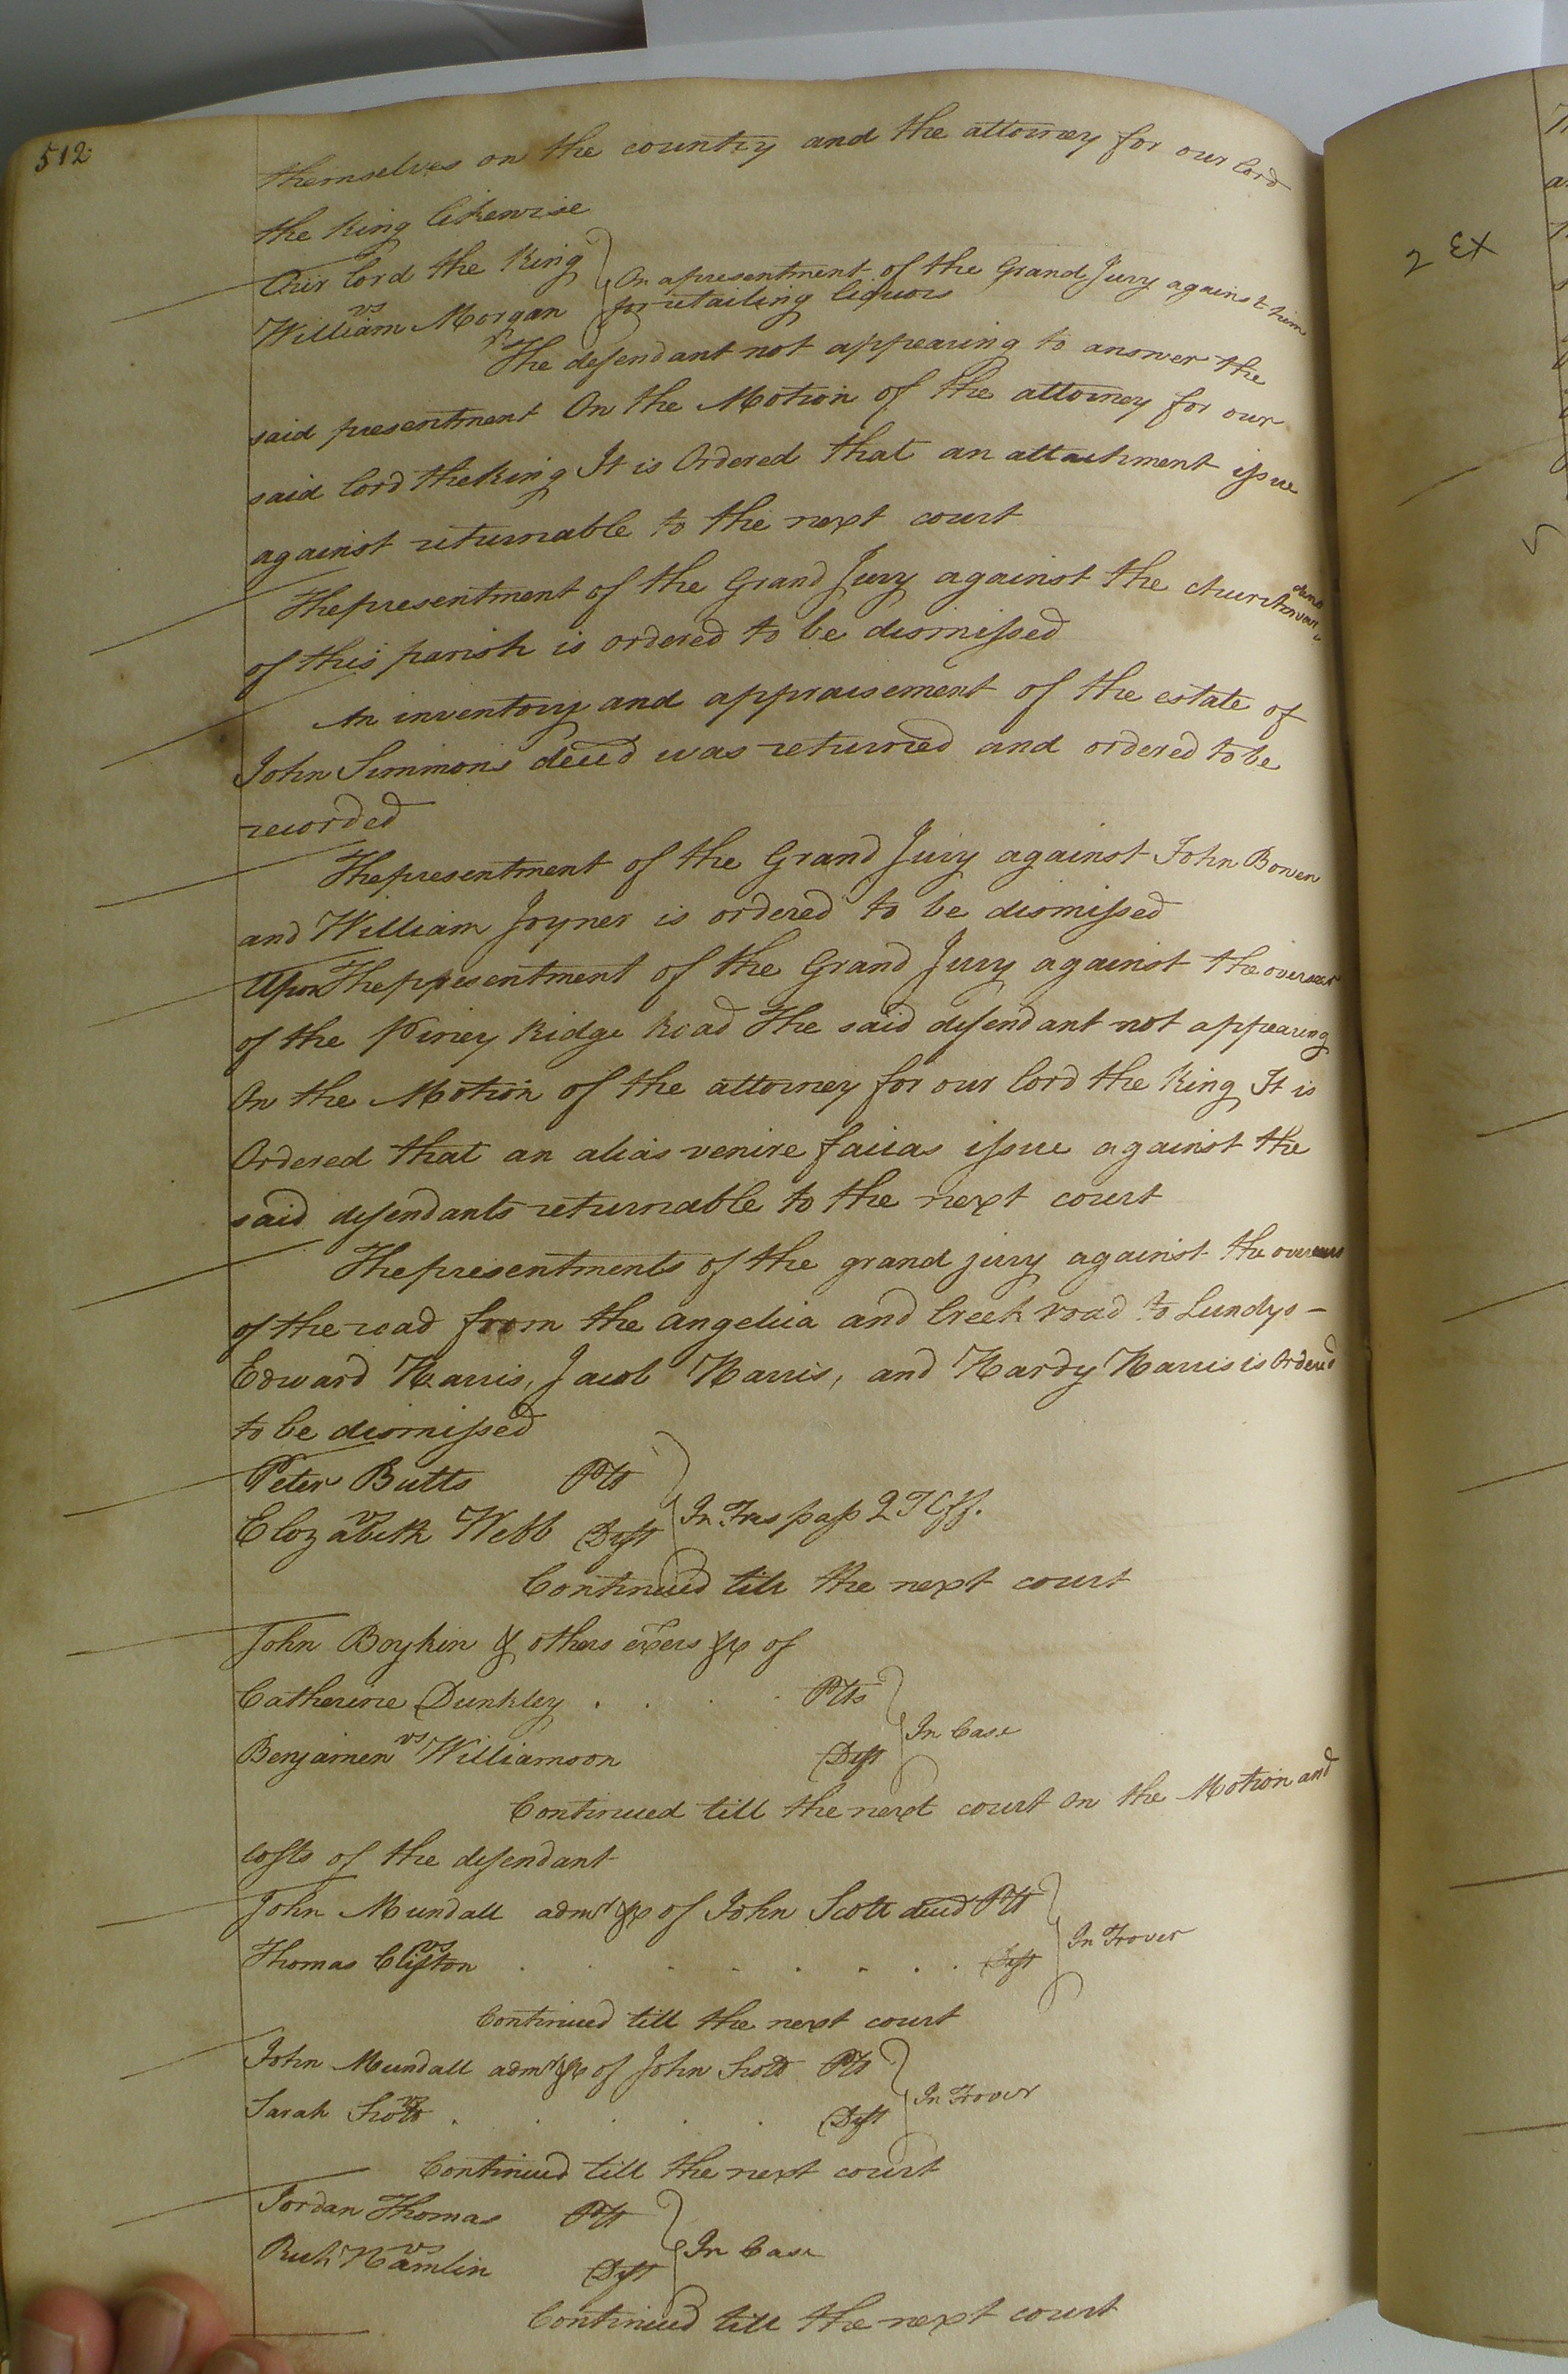 512
themselves on the country and the attorney for our lord
the King likewise
Our lord the King
vs
William Morgan
On a presentment of the Grand Jury against him
for retailing liquors
The defendant not appearing to answer the
said presentment On the Motion of the attorney for our
said lord the King It is Ordered that an attachment issue
against returnable to the next court
The presentment of the Grand Jury against the churchwardens
of this parish is ordered to be dismissed
An inventory and appraisement of the estate of
John Simmons decd was returned and ordered to be
recorded
The presentment of the Grand Jury against John Bowen
and William Joyner is ordered to be dismissed
Upon The presentment of the Grand Jury against the overseer
of the Piney Ridge Road The said defendant not appearing
On the Motion of the attorney for our lord the King It is
Ordered that an alias venire facias issue against the
said defendants returnable to the next court
The presentments of the grand jury against the overseers
of the road from the Angelica and Creek road to Lundys -
Edward Harris, Jacob Harris, and Hardy Harris is Ordered
to be dismissed
Peter Butts Plt
vs
Elozabeth Webb Deft
In Trespass
Continued till the next court
John Boykin & others exers &c of
Catherine Dunkley . . . . Plts
vs
Benjamen Williamson Deft
In Case
Continued till the next court on the Motion and
costs of the defendant
John Mundall admr &c of John Scott decd Plt
vs
Thomas Clifton . . . . . . . . Deft
In Trover
Continued till the next court
John Mundall admr &c of John Scott Plt
vs
Sarah Scott . . . . . Deft
In Trover
Continued till the next court
Jordan Thomas Plt
vs
Richd Hamlin Deft
In Case
Continued till the next court
2 Ex